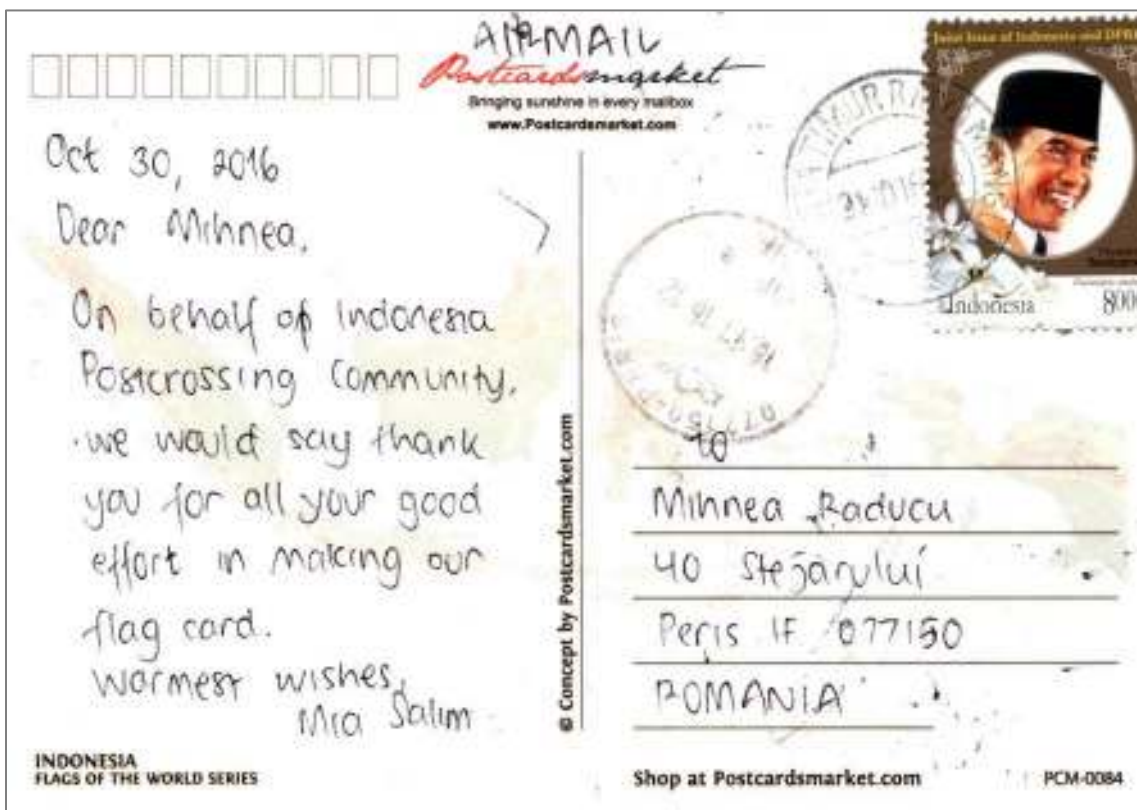 AIRMAIL
Postcardsmarket
Bringing sunshine in every mailbox
www.Postcardsmarket.com
Oct 30, 2016
Dear Mihnea,
On behalf of Indonesia
Postcrossing Community,
we would say thank
you for all your good
effort in making our
flag card.
Warmest wishes,
Mia Salim
INDONESIA
FLAGS OF THE WORLD SERIES
© Concept by Postcardsmarket.com
Joint Issue of Indonesia and DPR
Indonesia
800
TIMUR
077150
TO
Mihnea Raducu
40 Stejarului
Peris IF 077150
ROMANIA
Shop at Postcardsmarket.com
PCM-0084